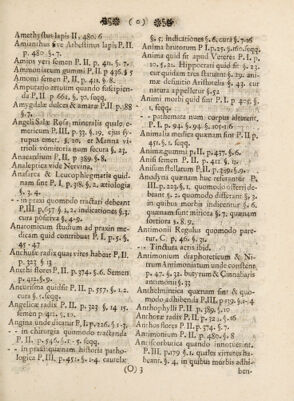 ( o )
Amethystus lapis II. 480. 6
Amianthus sive Asbestinus lapis P. II
p. 480. §. 7.
Amios veri semen P. II. p. 411. §. 7.
Ammoniacum gummi P. II p 436. §
Amomi semen P. II. p. 411. §. 8.
Amputatio artuum quando suscipienda
P. II. p. 661. §. 10. seqq.
Amygdalæ dulces & amaræ P. II. p. 88
§. 7.
Angeli Salæ Rosa mineralis
emericum P. III p. 33. §. 19. ejus
rupus emet. §. 20. et Manna
vitrioli vomitoria quorum sceus §. 21.
Anacardium P. II p 389. §. 8.
Analeptica vide Nervina,
Anasarca & Leucophlegmatia quid
nam sint P. I. p. 318. §. 2. ætiologia
§. 3. 4.
- in praxi quomodo tractari debeant
P. III. p. 657 §. 1, 2. indicationes §. 3.
cura posterior §. 4-9.
Anatomicum studium ad praxin medicam
quid contribuat P. I. p. 5. §.
45-47
Anchusæ radix quas vires habeat P. II
p. 323 §. 13
Anethi flores P. II. p. 374. §. 6. Semen
p. 412. §. 9.
Aneurisma quid sit P. II. p. 557. §. 1. 2.
cura §. 3. seqq.
Angelicæ radix P. II. p. 323 §. 14. 15
semen p. 412. §. 10.
Angina unde dicatur P. I. p. 226. §. 1-3.
- - in chirurgia quomodo tractanda
P. II. p. 546. §. 1. seqq.
- - in praxi quænam historia pathologica
P. III. p. 451 §. 1-4. cautelæ
§. 5; indicationes §. 6. cura §. 7-16
Anima brutorum P. I. p. 25. §. 160. seqq.
Anima quid sit apud Veteres P. I. p.
10. §. 21. Hippocrati quid sit §. 23.
cur quidam tres statuant §. 39. animæ
Aristotelis definitio §. 43. cur
natura appelletur §. 52
Animi morbi quid sint P. I. p. 94. §.
205. seqq.
- pathemata num corpus alterent.
P. I. p. 92. §. 194. §. 105-110
Animalia medica quænam sint P. II. p.
491. §. 1. seqq.
Animæ gummi p. II. p. 437. §. 6.
Anisi semen P. II. p. 412. §. 11.
Anisum stellatum P. II. p. 239. §. 9.
Anodyna quænam huc referantur P.
III. p. 223. §. 1. quomodo operari debeant
§. 2. quomodo differant §. 3.
in quibus morbis conveniant §. 4. 6.
quænam sint mitiora §. 7; quænam
fortiora §. 8. 9.
Antimonii Regulus quomodo paretur.
C. p. 46. §. 31.
- - Tinctura actis ibid.
Antimonium diaphoreticum & Nitrum
Antimoniatum unde constent
p. 47. §. 32. butyrum & Cinnabaris
antimonii §. 33
Anthelmintica quænam sint & quomodo
adhibenda P. III. p 119. §. 1-4
Anthophylli P. II. p. 389. §. 10
Anthoræ radix P. II p. 52. §. 16
Anthos flores P. II. 374. §. 7.
Antimonium P. II. p. 480. §. 8
Antiscorbutica quando innotuerint.
P. III p. 179 §. 1. quales virtutes habeant.
§. 4. in quibus morbis adhi-
(O) 3
ben-